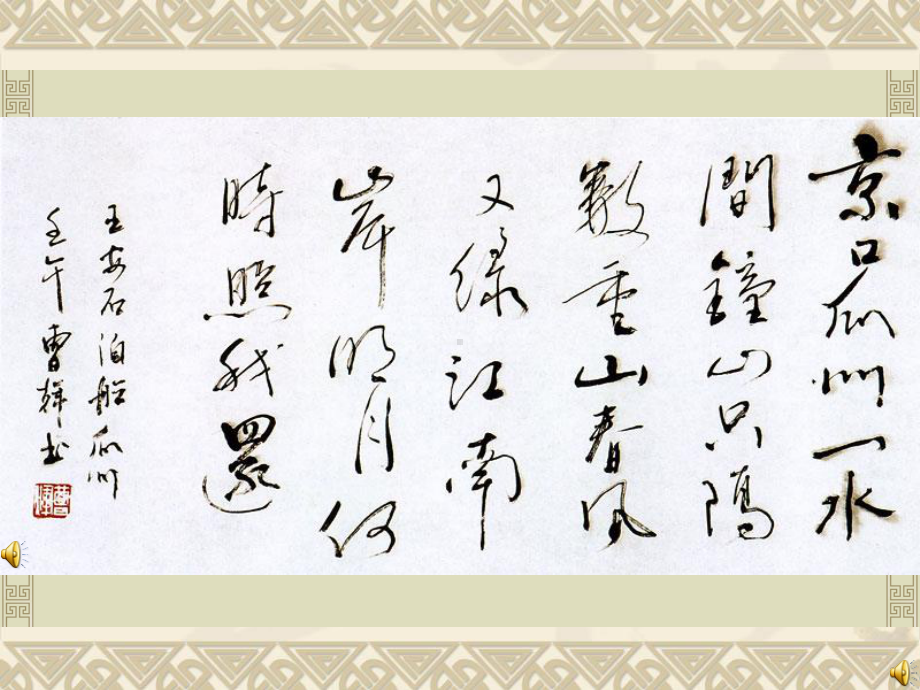 京口瓜州一水
間鐘山只隔
數重山春風
又綠江南
岸明月何
時照我還
王安石泊船瓜州
壬午曹輝書